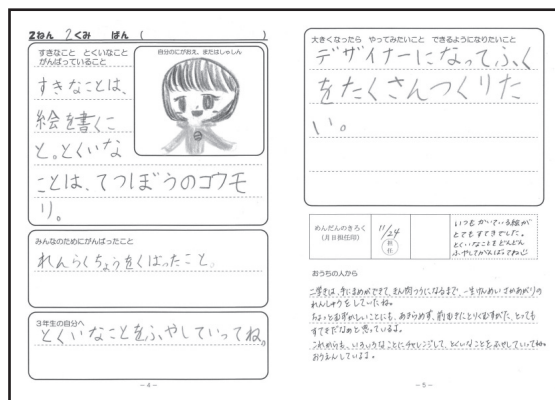 2ねん 2くみ ばん ( )
すきなこと とくいなこと
がんばっていること
自分のにがおえ、またはしゃしん
すきなことは、
絵を書くこ
と。とくいな
ことは、てつぼうのコウモ
リ。
みんなのためにがんばったこと
れんらくちょうをくばったこと。
3年生の自分へ
とくいなことをふやしていってね。
-4-
大きくなったら やってみたいこと できるようになりたいこと
デザイナーになってふく
をたくさんつくりた
い。
めんだんのきろく
(月日担任印)
11/24
担任
いつもかいている絵が
とてもすてきでした。
とくいなことをどんどん
ふやしてがんばってね
おうちの人から
二学きは、手にまめができて、まん間つうになるまで、一生けんめい さかあがりの
れんしゅうをしていたね。
ちょっとむずかしいことにも、あきらめず、前むきにとりくむすがた、とっても
すてきだなぁと思っているよ。
これからも、いろいろなことにチャレンジして、とくいなことをふやしていってね。
おうえんしているよ。
-5-